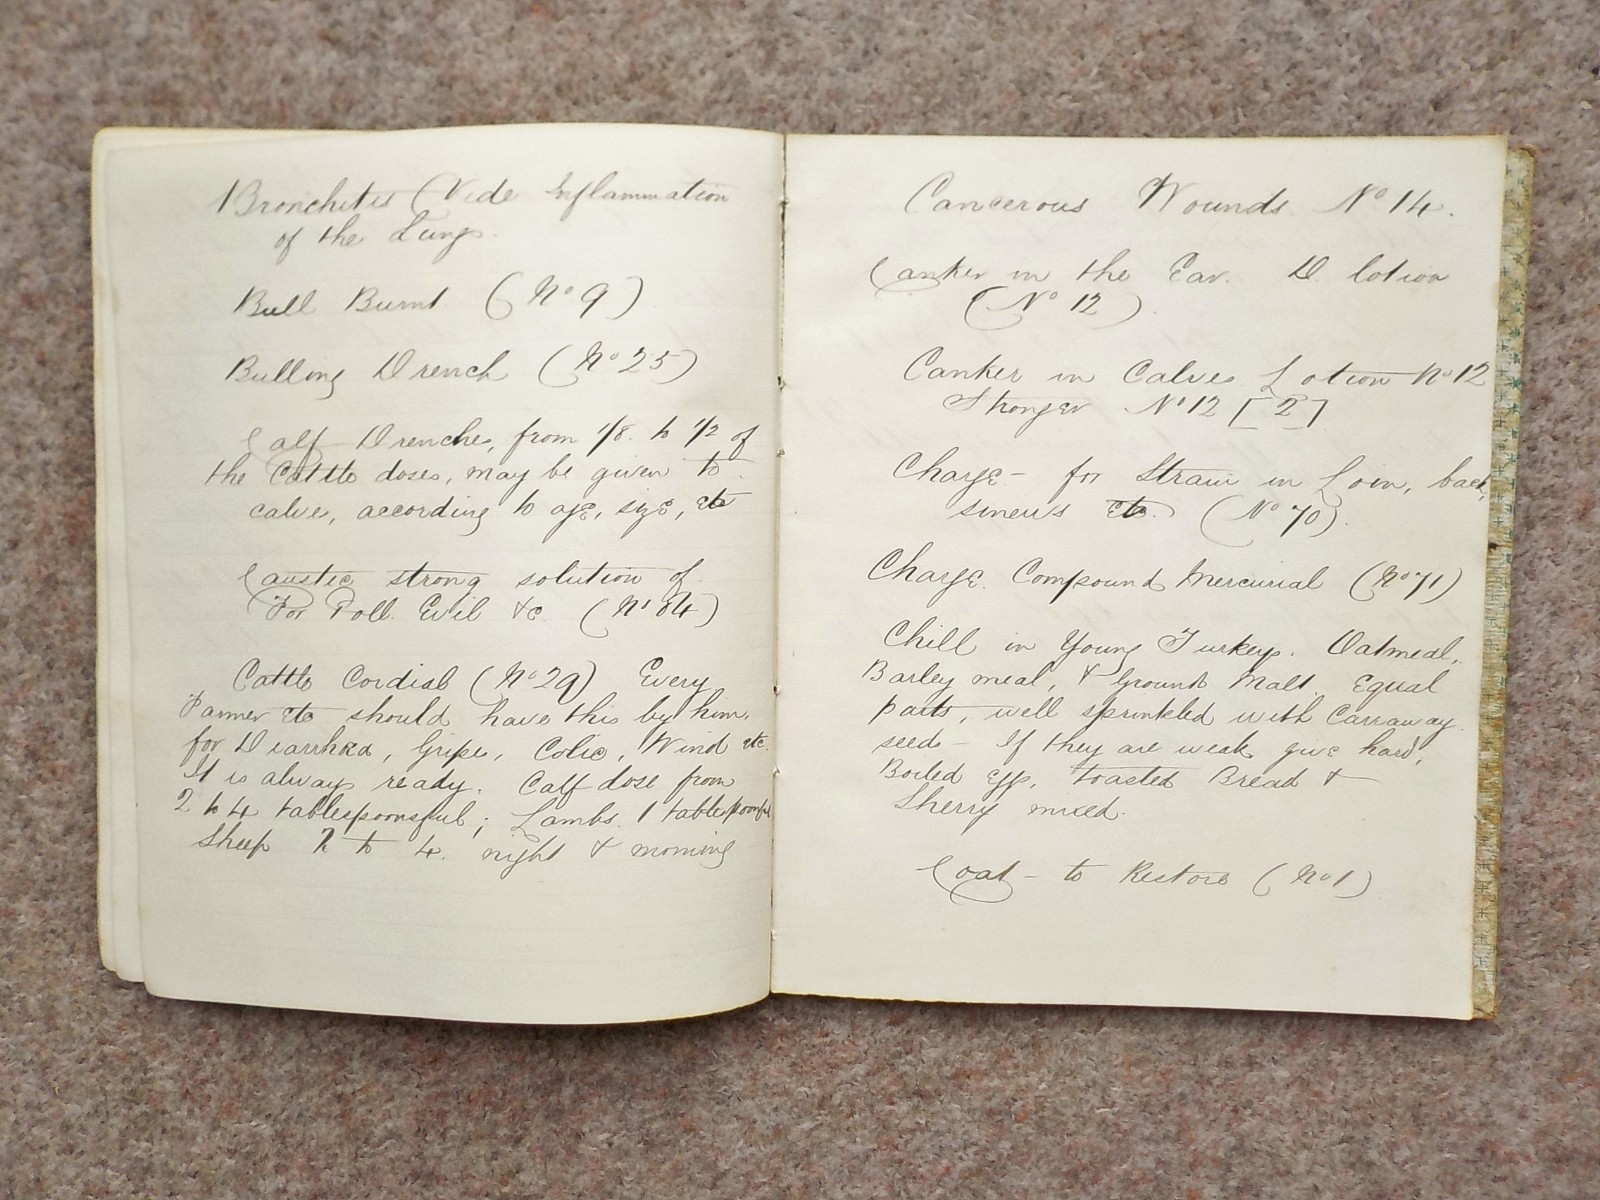 Bronchitis (Vide Inflammation
of the Lungs.
Bull Burnt (No 9)
Bulling Drench (No 25)
Calf Drenches, from 1/8. to 1/2 of
the Cattle doses, may be given to
calves, according to age, size, etc
Caustic strong solution of
For Poll Evil &c (No 84)
Cattle Cordial (No 29) Every
Farmer etc should have this by him,
for Diarrhea, Gripes, Colic, Wind etc.
It is always ready. Calf dose from
2 to 4 tablespoonsful; Lambs. 1 tablespoonful
Sheep 2 to 4. night & morning
Cancerous Wounds No 14.
Canker in the Ear. D. lotion
(No 12).
Canker in Calves Lotion No 12
Stronger No 12 [2]
Charge - for Strain in Loin, back,
sinews etc. (No 70).
Charge. Compound Mercurial (No 71)
Chill in Young Turkeys. Oatmeal,
Barley meal, & Ground Malt. Equal
parts, well sprinkled with Carraway
seeds - If they are weak give hard,
Boiled Eggs, toasted Bread &
Sherry mixed.
Coat - to Restore (No 1)